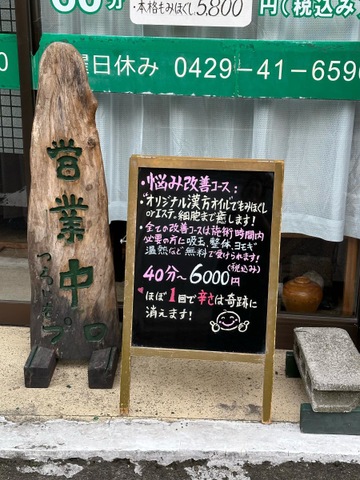 60分
・本格もみほぐし5,800
円(税込み
曜日休み 0429-41-6590
営業中
・悩み改善コース:
"オリジナル漢方オイルでもみほぐし
orエステ。細胞まで癒します!
・全ての改善コースは施術時間内
必要の方に吸玉、整体、ヨモギ
温熱など無料で受けられます!
(税込み)
40分〜6000円
ほぼ1回で辛さは奇跡に
消えます!